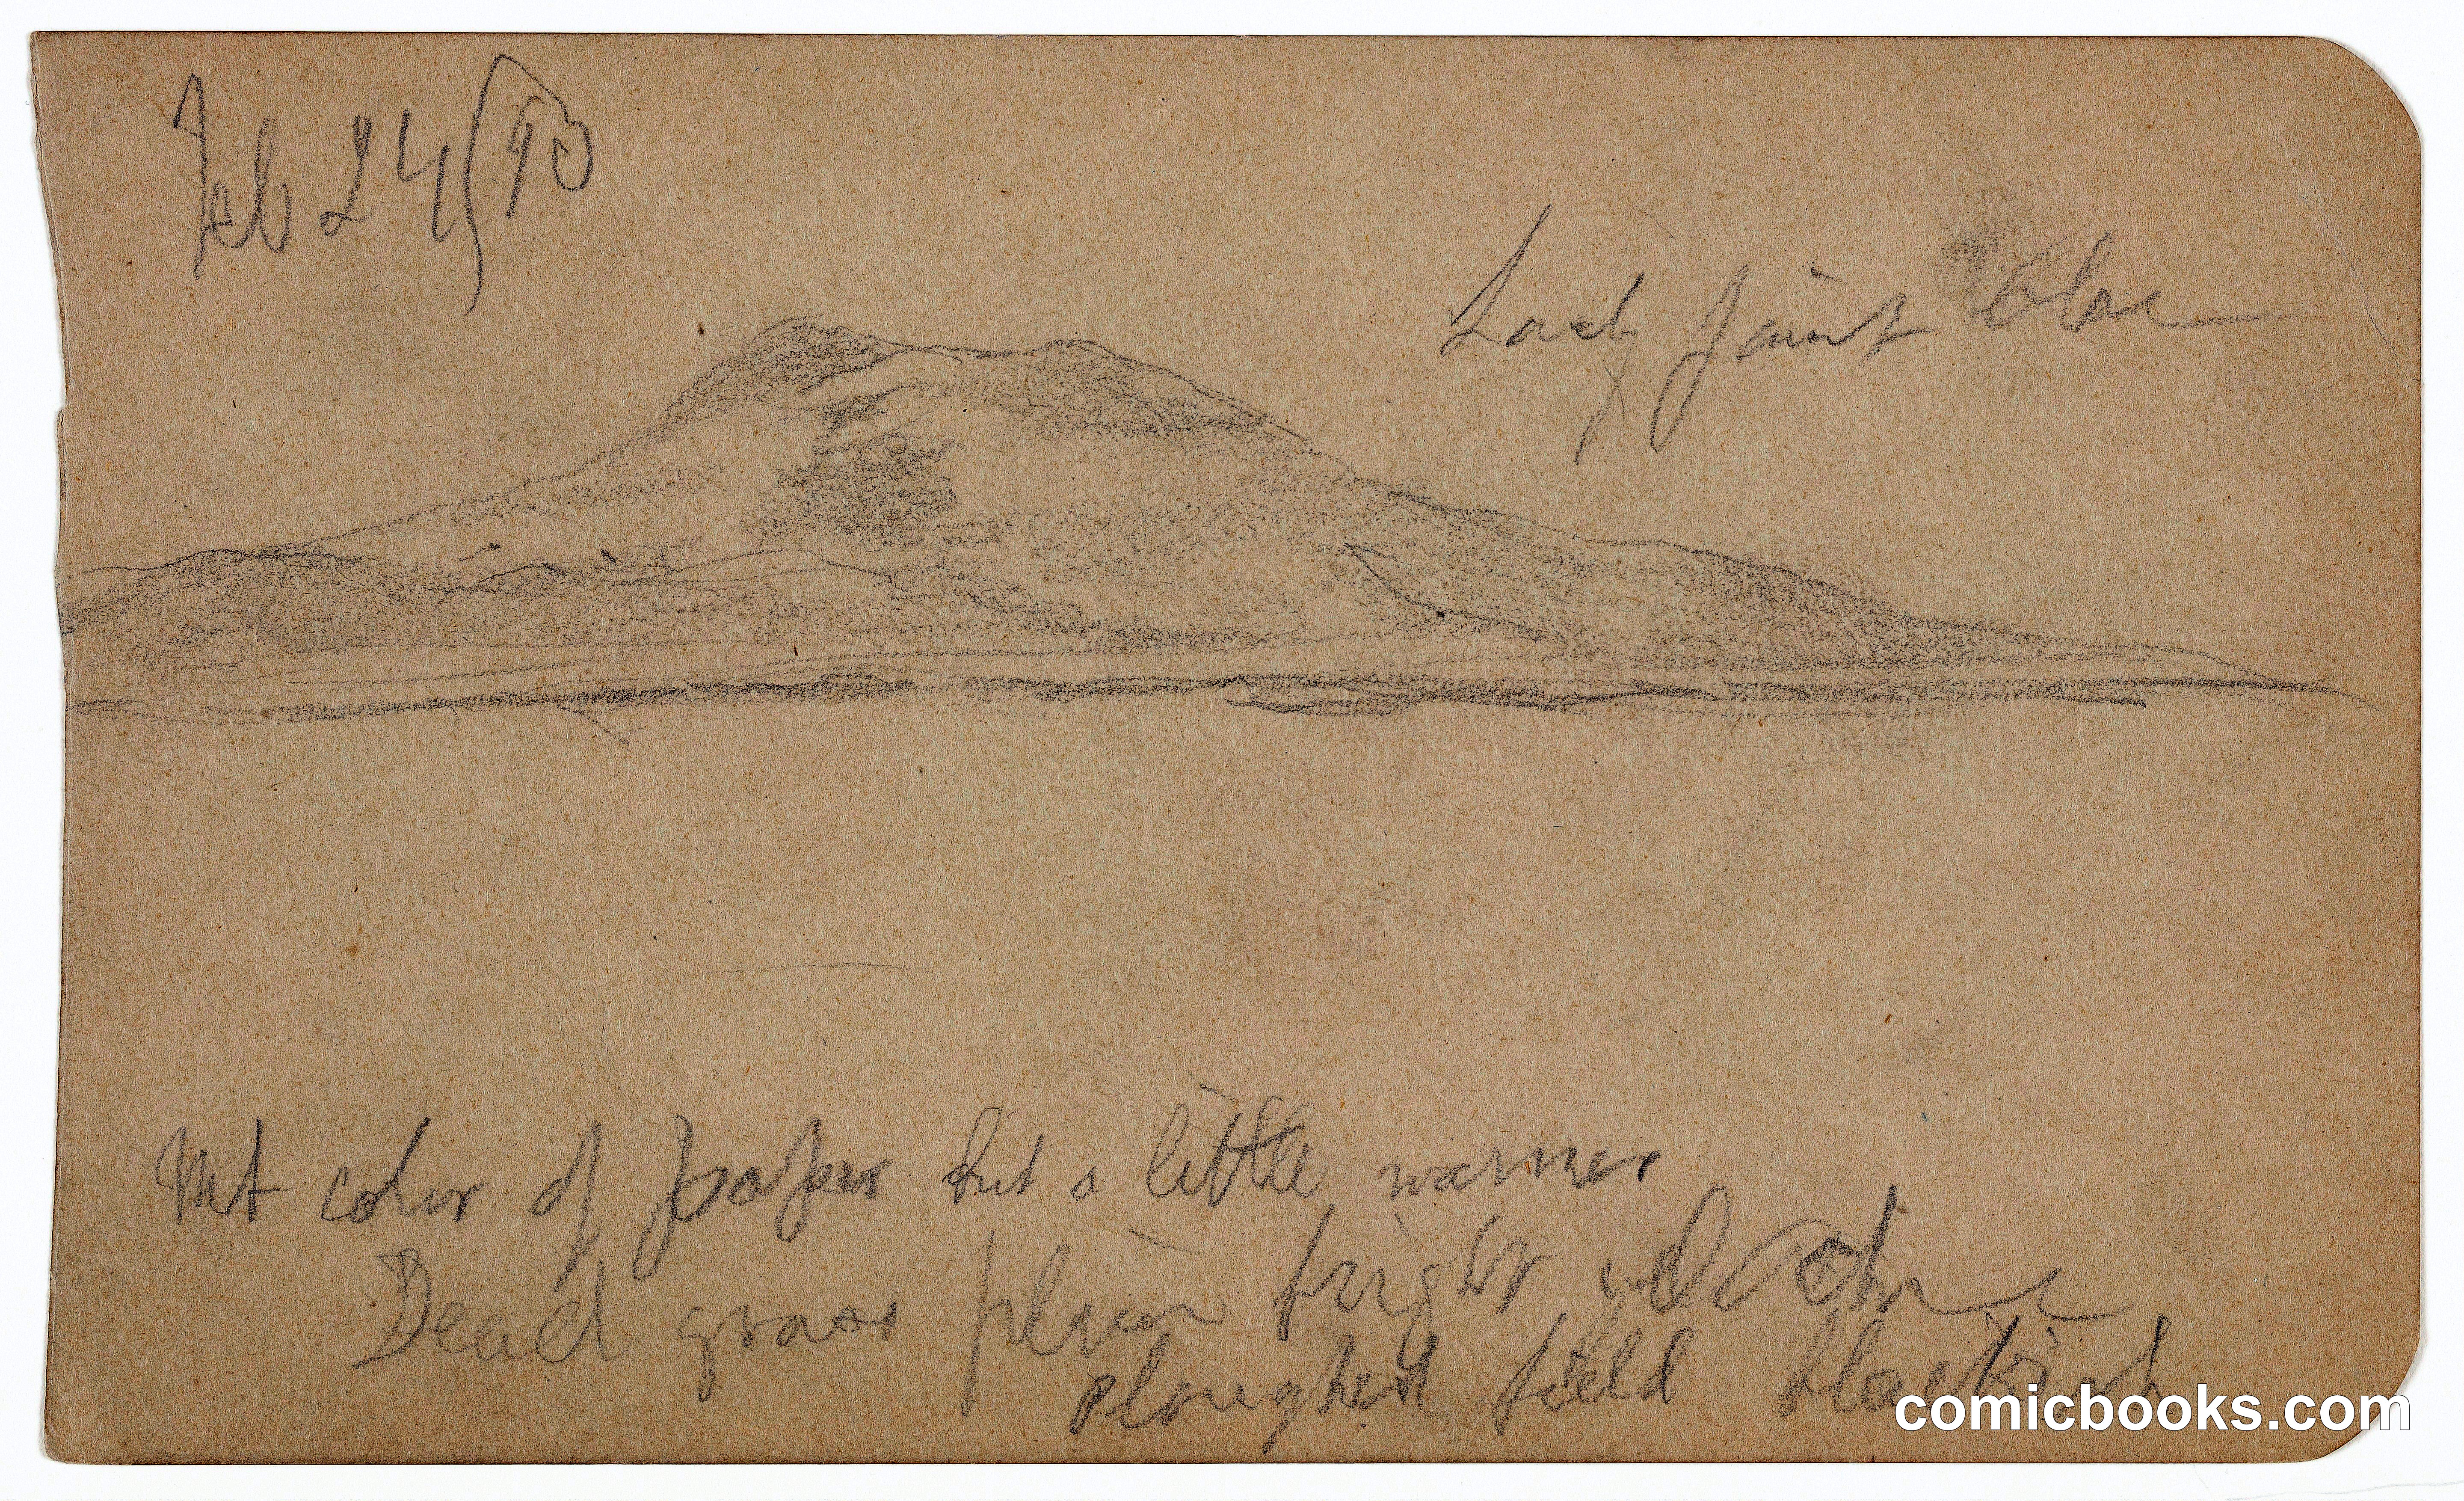 Feb 24/90
faint blue
Mt color of paper but a little warmer
Dead grass plain bright
Ploughed field blackish
comicbooks.com